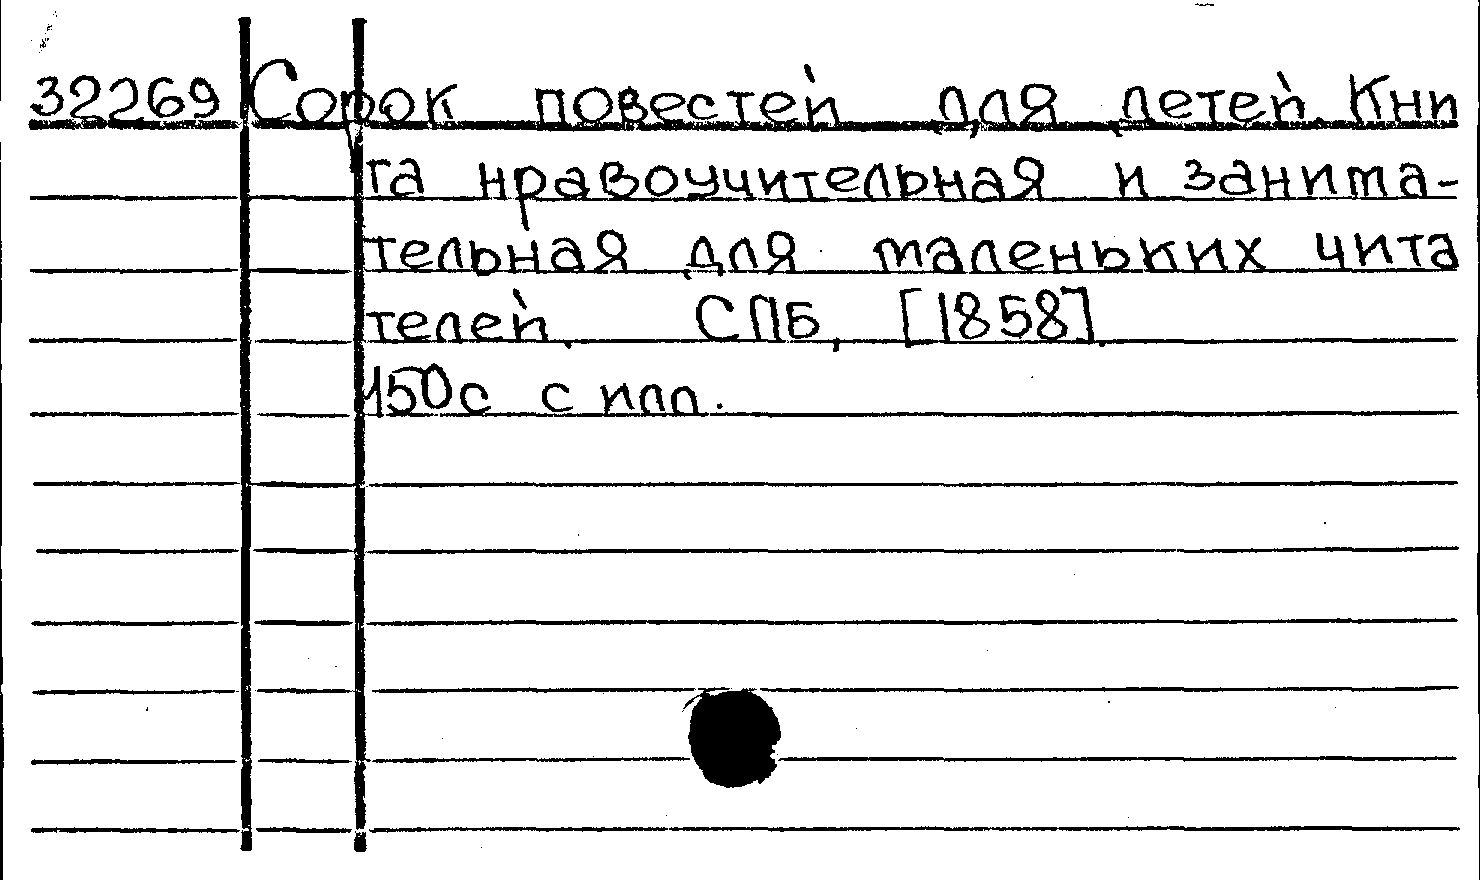 32269 Сорок повестей для детей. Кни
га нравоучительная и занима-
тельная для маленьких чита
телей. СПБ, [1858].
150с с илл.